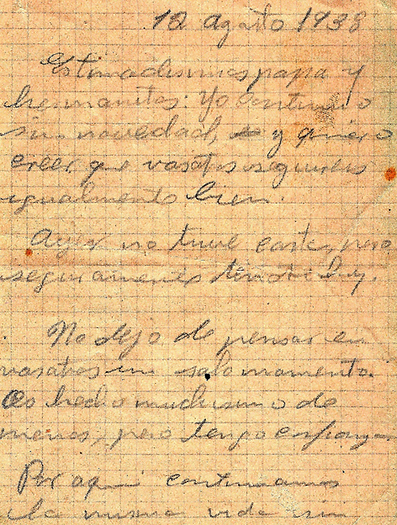 10 agosto 1938
Estimadisimos papa y
hermanitos: Yo continuo
sin novedad, y quiero
creer que vosotros seguireis
igualmente bien.
Ayer no tuve carta, pero
seguramente tendré hoy.
No dejo de pensar en
vosotros un solo momento.
Os hecho muchisimo de
menos, pero tengo
Por aqui continuamos
la misma vida sin